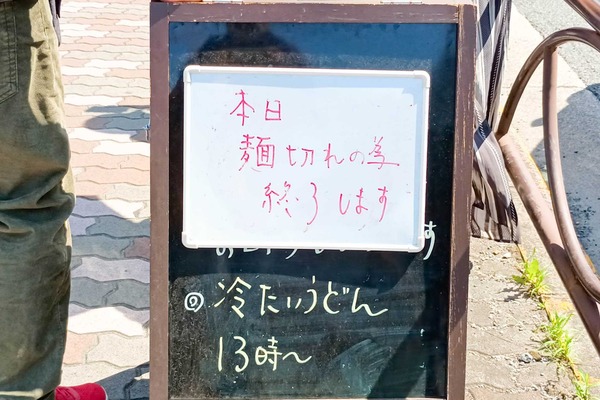 本日
麺切れの為
終了します
◎冷たいうどん
13時〜